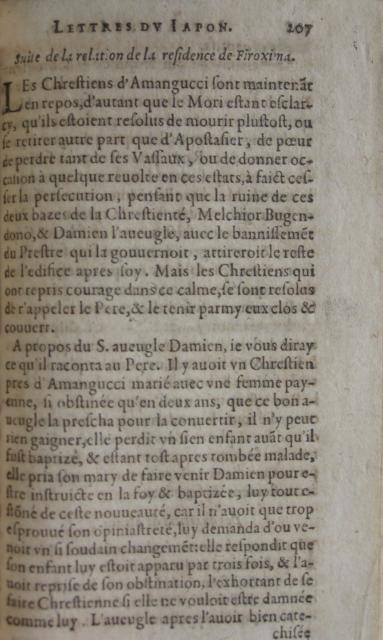 LETTRES DV IAPON. 207
Suite de la relation de la residence de Firoxima.
LEs Chrestiens d'Amangucci sont maintenāt
en repos, d'autant que le Mori estant esclar-
cy, qu'ils estoient resolus de mourir plustost, ou
se retirer autre part que d'Apostasier, de pœur
de perdre tant de ses Vassaux, ou de donner oc-
casion à quelque reuolte en ces estats, à faict ces-
ser la persecution, pensant que la ruine de ces
deux bazes de la Chrestienté, Melchior Bugen-
dono, & Damien l'aueugle, auec le bannissemēt
du Prestre qui la gouuernoit, attireroit le reste
de l'edifice apres soy. Mais les Chrestiens qui
ont repris courage dans ce calme, se sont resolus
de r'appeler le Pere, & le tenir parmy eux clos &
couuert.
A propos du S. aueugle Damien, ie vous diray
ce qu'il raconta au Pere. Il y auoit vn Chrestien
pres d'Amangucci marié auec vne femme pay-
enne, si obstinée qu'en deux ans, que ce bon a-
ueugle la prescha pour la conuertir, il n'y peut
rien gaigner, elle perdit vn sien enfant auāt qu'il
fust baptizé, & estant tost apres tombée malade,
elle pria son mary de faire venir Damien pour e-
stre instruicte en la foy & baptizée, luy tout e-
stōné de ceste nouueauté, car il n'auoit que trop
esprouué son opiniastreté, luy demanda d'ou ve-
noit vn si soudain changemēt: elle respondit que
son enfant luy estoit apparu par trois fois, & l'a-
uoit reprise de son obstination, l'exhortant de se
faire Chrestienne si elle ne vouloit estre damnée
comme luy. L'aueugle apres l'auoir bien cate-
chisée